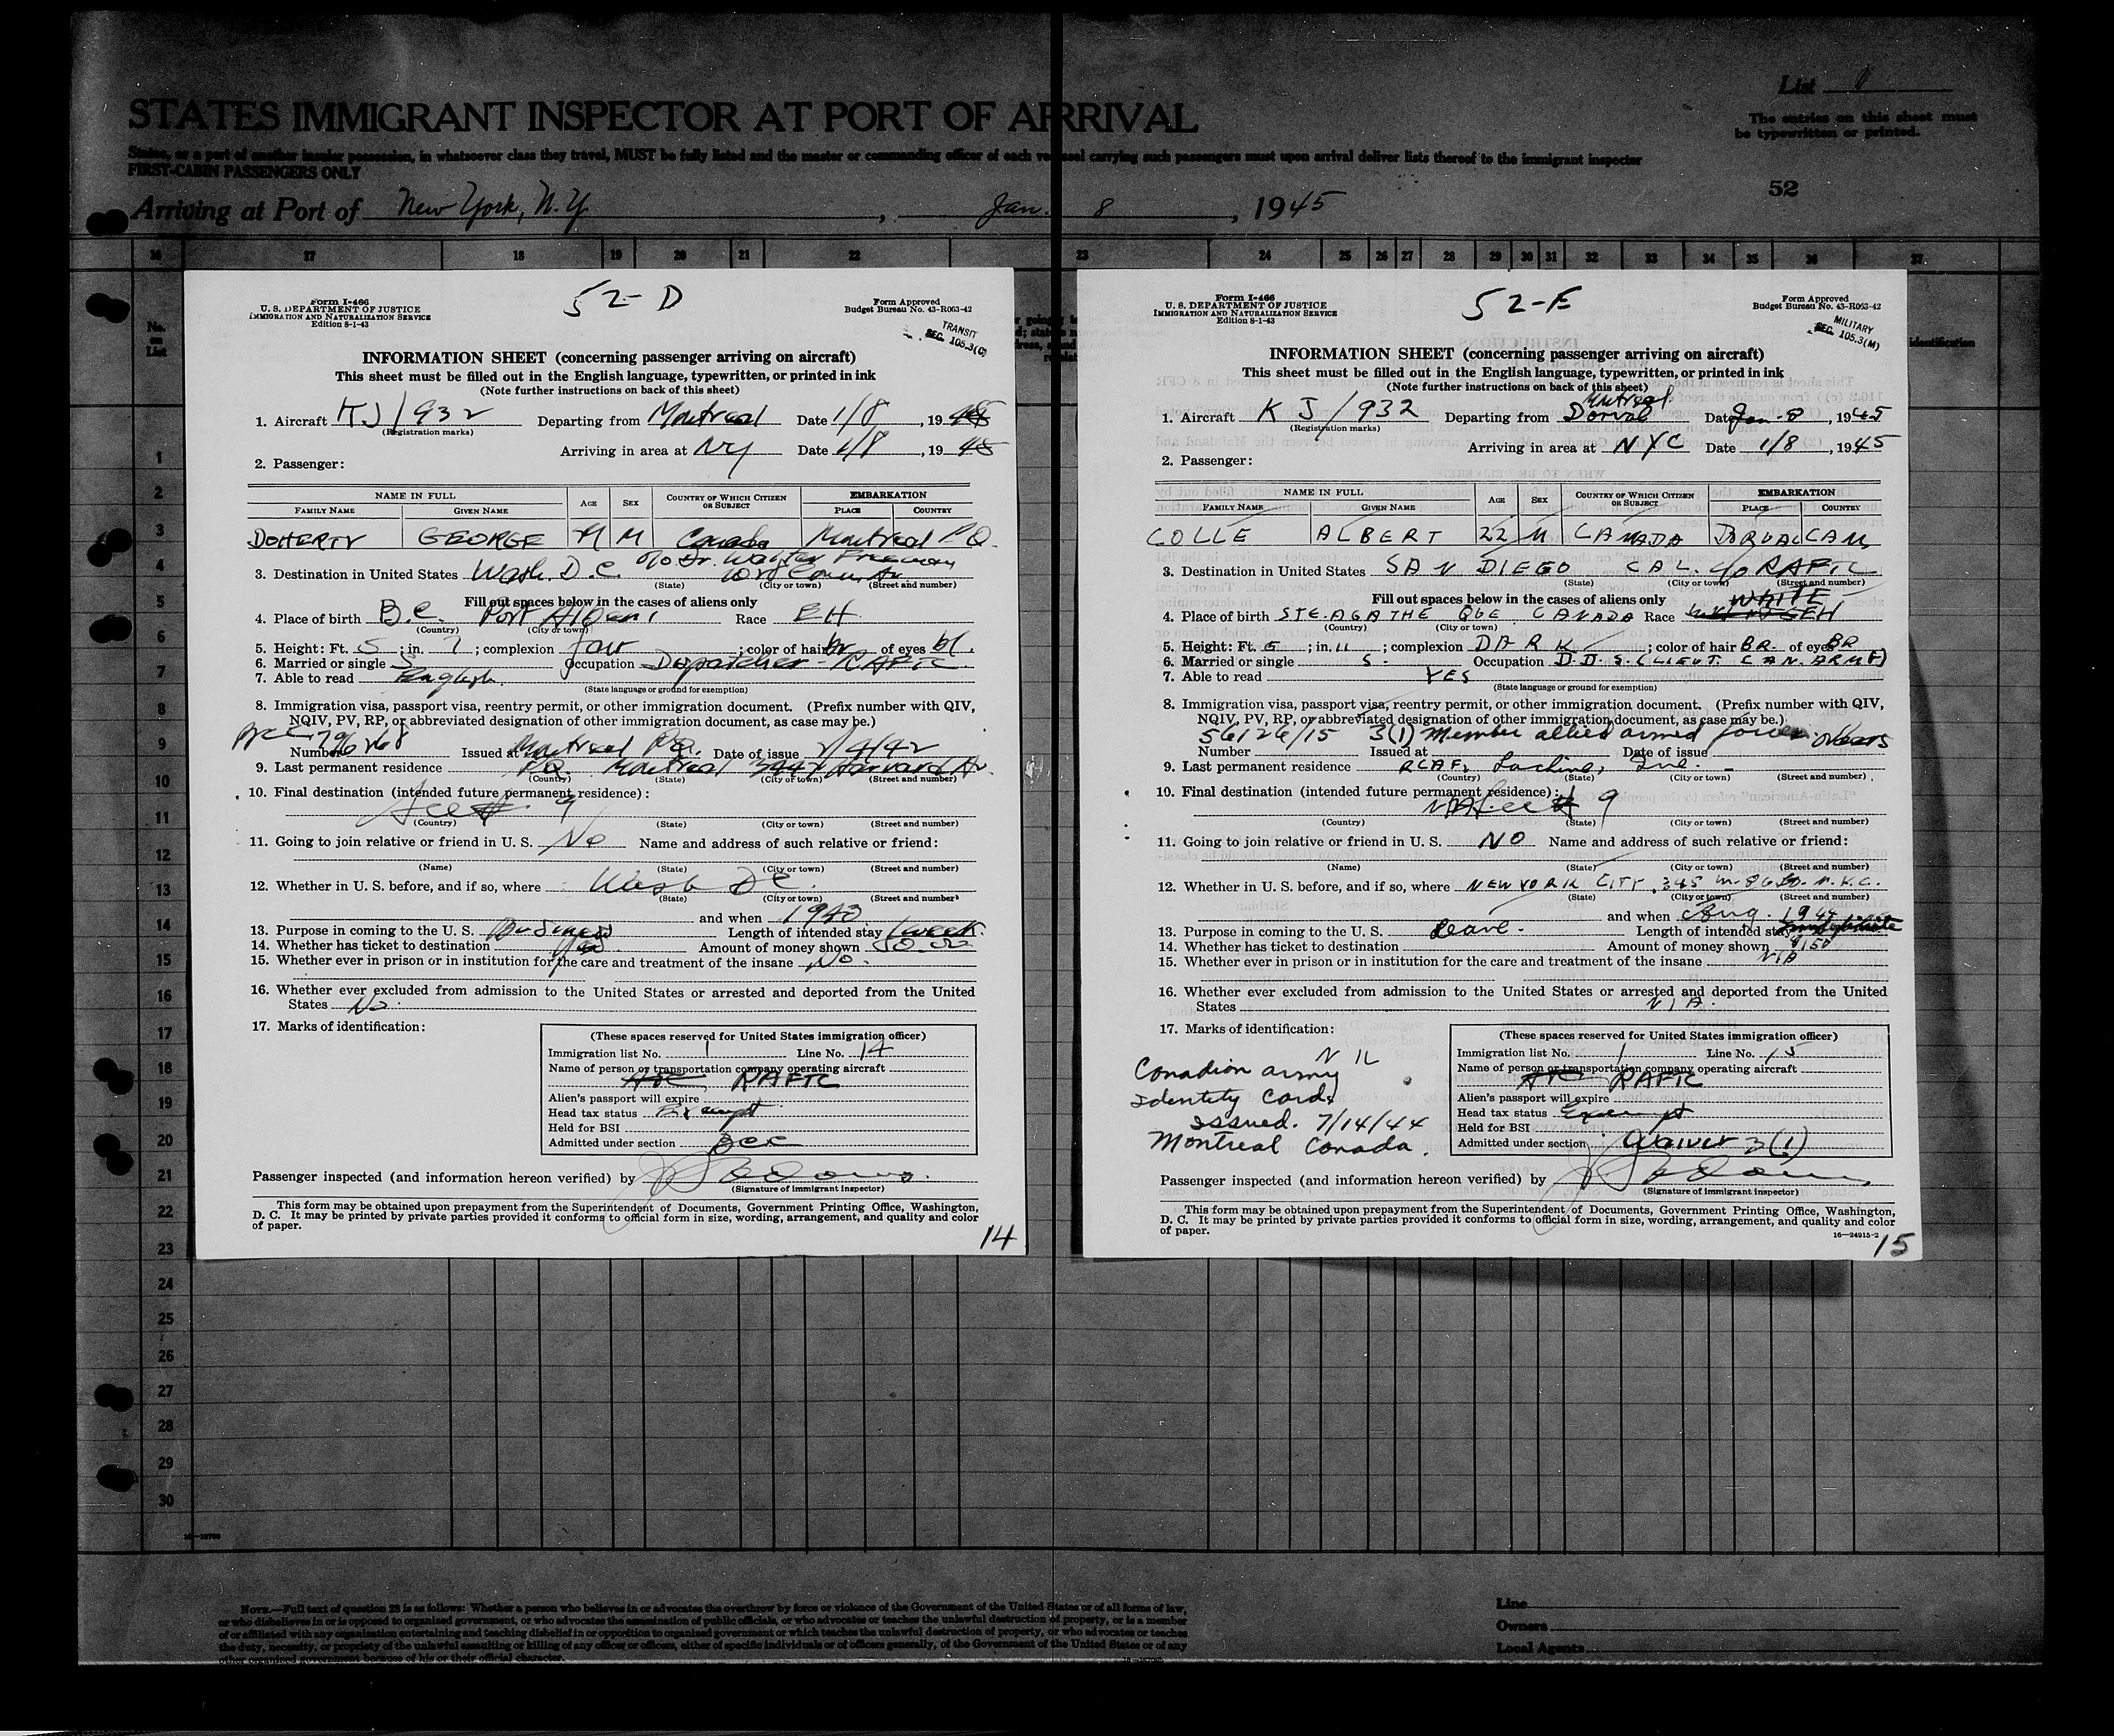 List
STATES IMMIGRANT INSPECTOR AT PORT OF ARRIVAL
The entries on this sheet must
be typewritten or printed.
States, or a part of another insular possession, in whatsoever class they travel, MUST be fully listed and the master or commanding officer of each vessel carrying such passengers must upon arrival deliver lists thereof to the immigrant inspector
FIRST-CABIN PASSENGERS ONLY
52
Arriving at Port of New York, N.Y. , Jan. 8 , 1945
16 17 18 19 20 21 22 23 24 25 26 27 28 29 30 31 32 33 34 35 36 37
No. on List
1
2
3
4
5
6
7
8
9
10
11
12
13
14
15
16
17
18
19
20
21
22
23
24
25
26
27
28
29
30
Form I-466
U. S. DEPARTMENT OF JUSTICE
IMMIGRATION AND NATURALIZATION SERVICE
Edition 8-1-43
52-D
Form Approved
Budget Bureau No. 43-R063-42
TRANSIT
SEC. 105.3(C)
INFORMATION SHEET (concerning passenger arriving on aircraft)
This sheet must be filled out in the English language, typewritten, or printed in ink
(Note further instructions on back of this sheet)
1. Aircraft KJ/932 Departing from Montreal Date 1/8 , 1945
(Registration marks)
Arriving in area at NY Date 1/8 , 1945
2. Passenger:
NAME IN FULL AGE SEX COUNTRY OF WHICH CITIZEN OR SUBJECT EMBARKATION
FAMILY NAME GIVEN NAME PLACE COUNTRY
DOHERTY GEORGE M Canada Montreal P.Q.
c/o Dr. Walter Freeman
3. Destination in United States Wash. D.C. 1028 Conn Av
(State) (City or town) (Street and number)
Fill out spaces below in the cases of aliens only
4. Place of birth B.C. Port Alberni Race EH
(Country) (City or town)
5. Height: Ft. 5 ; in. 7 ; complexion fair ; color of hair br of eyes bl.
6. Married or single S Occupation Dispatcher - RAFTC
7. Able to read English
(State language or ground for exemption)
8. Immigration visa, passport visa, reentry permit, or other immigration document. (Prefix number with QIV,
NQIV, PV, RP, or abbreviated designation of other immigration document, as case may be.)
Number Issued at Montreal P.Q. Date of issue 2/4/42
9. Last permanent residence P.Q. Montreal 3447 Harvard Av.
(Country) (State) (City or town) (Street and number)
10. Final destination (intended future permanent residence):
See # 9
(Country) (State) (City or town) (Street and number)
11. Going to join relative or friend in U. S. No Name and address of such relative or friend:
(Name) (State) (City or town) (Street and number)
12. Whether in U. S. before, and if so, where Wash DC.
(State) (City or town) (Street and number)
and when 1943
13. Purpose in coming to the U. S. Business Length of intended stay 1 week
14. Whether has ticket to destination Yes Amount of money shown 50.00
15. Whether ever in prison or in institution for the care and treatment of the insane No.
16. Whether ever excluded from admission to the United States or arrested and deported from the United
States No.
17. Marks of identification:
(These spaces reserved for United States immigration officer)
Immigration list No. 1 Line No. 14
Name of person or transportation company operating aircraft
RAFTC
Alien's passport will expire
Head tax status Exempt
Held for BSI
Admitted under section BCC
Passenger inspected (and information hereon verified) by
(Signature of immigrant inspector)
This form may be obtained upon prepayment from the Superintendent of Documents, Government Printing Office, Washington,
D. C. It may be printed by private parties provided it conforms to official form in size, wording, arrangement, and quality and color
of paper.
14
Form I-466
U. S. DEPARTMENT OF JUSTICE
IMMIGRATION AND NATURALIZATION SERVICE
Edition 8-1-43
52-E
Form Approved
Budget Bureau No. 43-R063-42
MILITARY
SEC. 105.3(M)
INFORMATION SHEET (concerning passenger arriving on aircraft)
This sheet must be filled out in the English language, typewritten, or printed in ink
(Note further instructions on back of this sheet)
Montreal
1. Aircraft KJ/932 Departing from Dorval Date Jan - 8 , 1945
(Registration marks)
Arriving in area at NYC Date 1/8 , 1945
2. Passenger:
NAME IN FULL AGE SEX COUNTRY OF WHICH CITIZEN OR SUBJECT EMBARKATION
FAMILY NAME GIVEN NAME PLACE COUNTRY
COLLE ALBERT 22 M CANADA DORVAL CAN
3. Destination in United States SAN DIEGO CAL. c/o RAFTC
(State) (City or town) (Street and number)
Fill out spaces below in the cases of aliens only WHITE
4. Place of birth STE. AGATHE QUE. CANADA Race
(Country) (City or town)
5. Height: Ft. 5 ; in. 11 ; complexion DARK ; color of hair BR. of eyes BR
6. Married or single S. Occupation D.D.S. (LIEUT. CAN. ARMY)
7. Able to read YES
(State language or ground for exemption)
8. Immigration visa, passport visa, reentry permit, or other immigration document. (Prefix number with QIV,
NQIV, PV, RP, or abbreviated designation of other immigration document, as case may be.)
56126/15 3(1) Member allied armed forces
Number Issued at Date of issue
9. Last permanent residence RCAF, Lachine, Que.
(Country) (State) (City or town) (Street and number)
10. Final destination (intended future permanent residence):
See # 9
(Country) (State) (City or town) (Street and number)
11. Going to join relative or friend in U. S. NO Name and address of such relative or friend:
(Name) (State) (City or town) (Street and number)
12. Whether in U. S. before, and if so, where NEW YORK CITY, 345 W. 86 St. N.Y.C.
(State) (City or town) (Street and number)
and when Aug. 1944
13. Purpose in coming to the U. S. Leave. Length of intended stay
14. Whether has ticket to destination Amount of money shown $150
15. Whether ever in prison or in institution for the care and treatment of the insane N/A
16. Whether ever excluded from admission to the United States or arrested and deported from the United
States N/A.
17. Marks of identification:
NIL
Canadian army
Identity Card.
Issued. 7/14/44
Montreal Canada.
(These spaces reserved for United States immigration officer)
Immigration list No. 1 Line No. 15
Name of person or transportation company operating aircraft
RAFTC
Alien's passport will expire
Head tax status Exempt
Held for BSI
Admitted under section Waiver 3(1)
Passenger inspected (and information hereon verified) by
(Signature of immigrant inspector)
This form may be obtained upon prepayment from the Superintendent of Documents, Government Printing Office, Washington,
D. C. It may be printed by private parties provided it conforms to official form in size, wording, arrangement, and quality and color
of paper.
16—24915-2
15
NOTE.—Full text of question 28 is as follows: Whether a person who believes in or advocates the overthrow by force or violence of the Government of the United States or of all forms of law,
or who disbelieves in or is opposed to organized government, or who advocates the assassination of public officials, or who advocates or teaches the unlawful destruction of property, or is a member
of or affiliated with any organization entertaining and teaching disbelief in or opposition to organized government or which teaches the unlawful destruction of property, or who advocates or teaches
the duty, necessity, or propriety of the unlawful assaulting or killing of any officer or officers, either of specific individuals or of officers generally, of the Government of the United States or of any
other organized government because of his or their official character.
Line
Owners
Local Agents